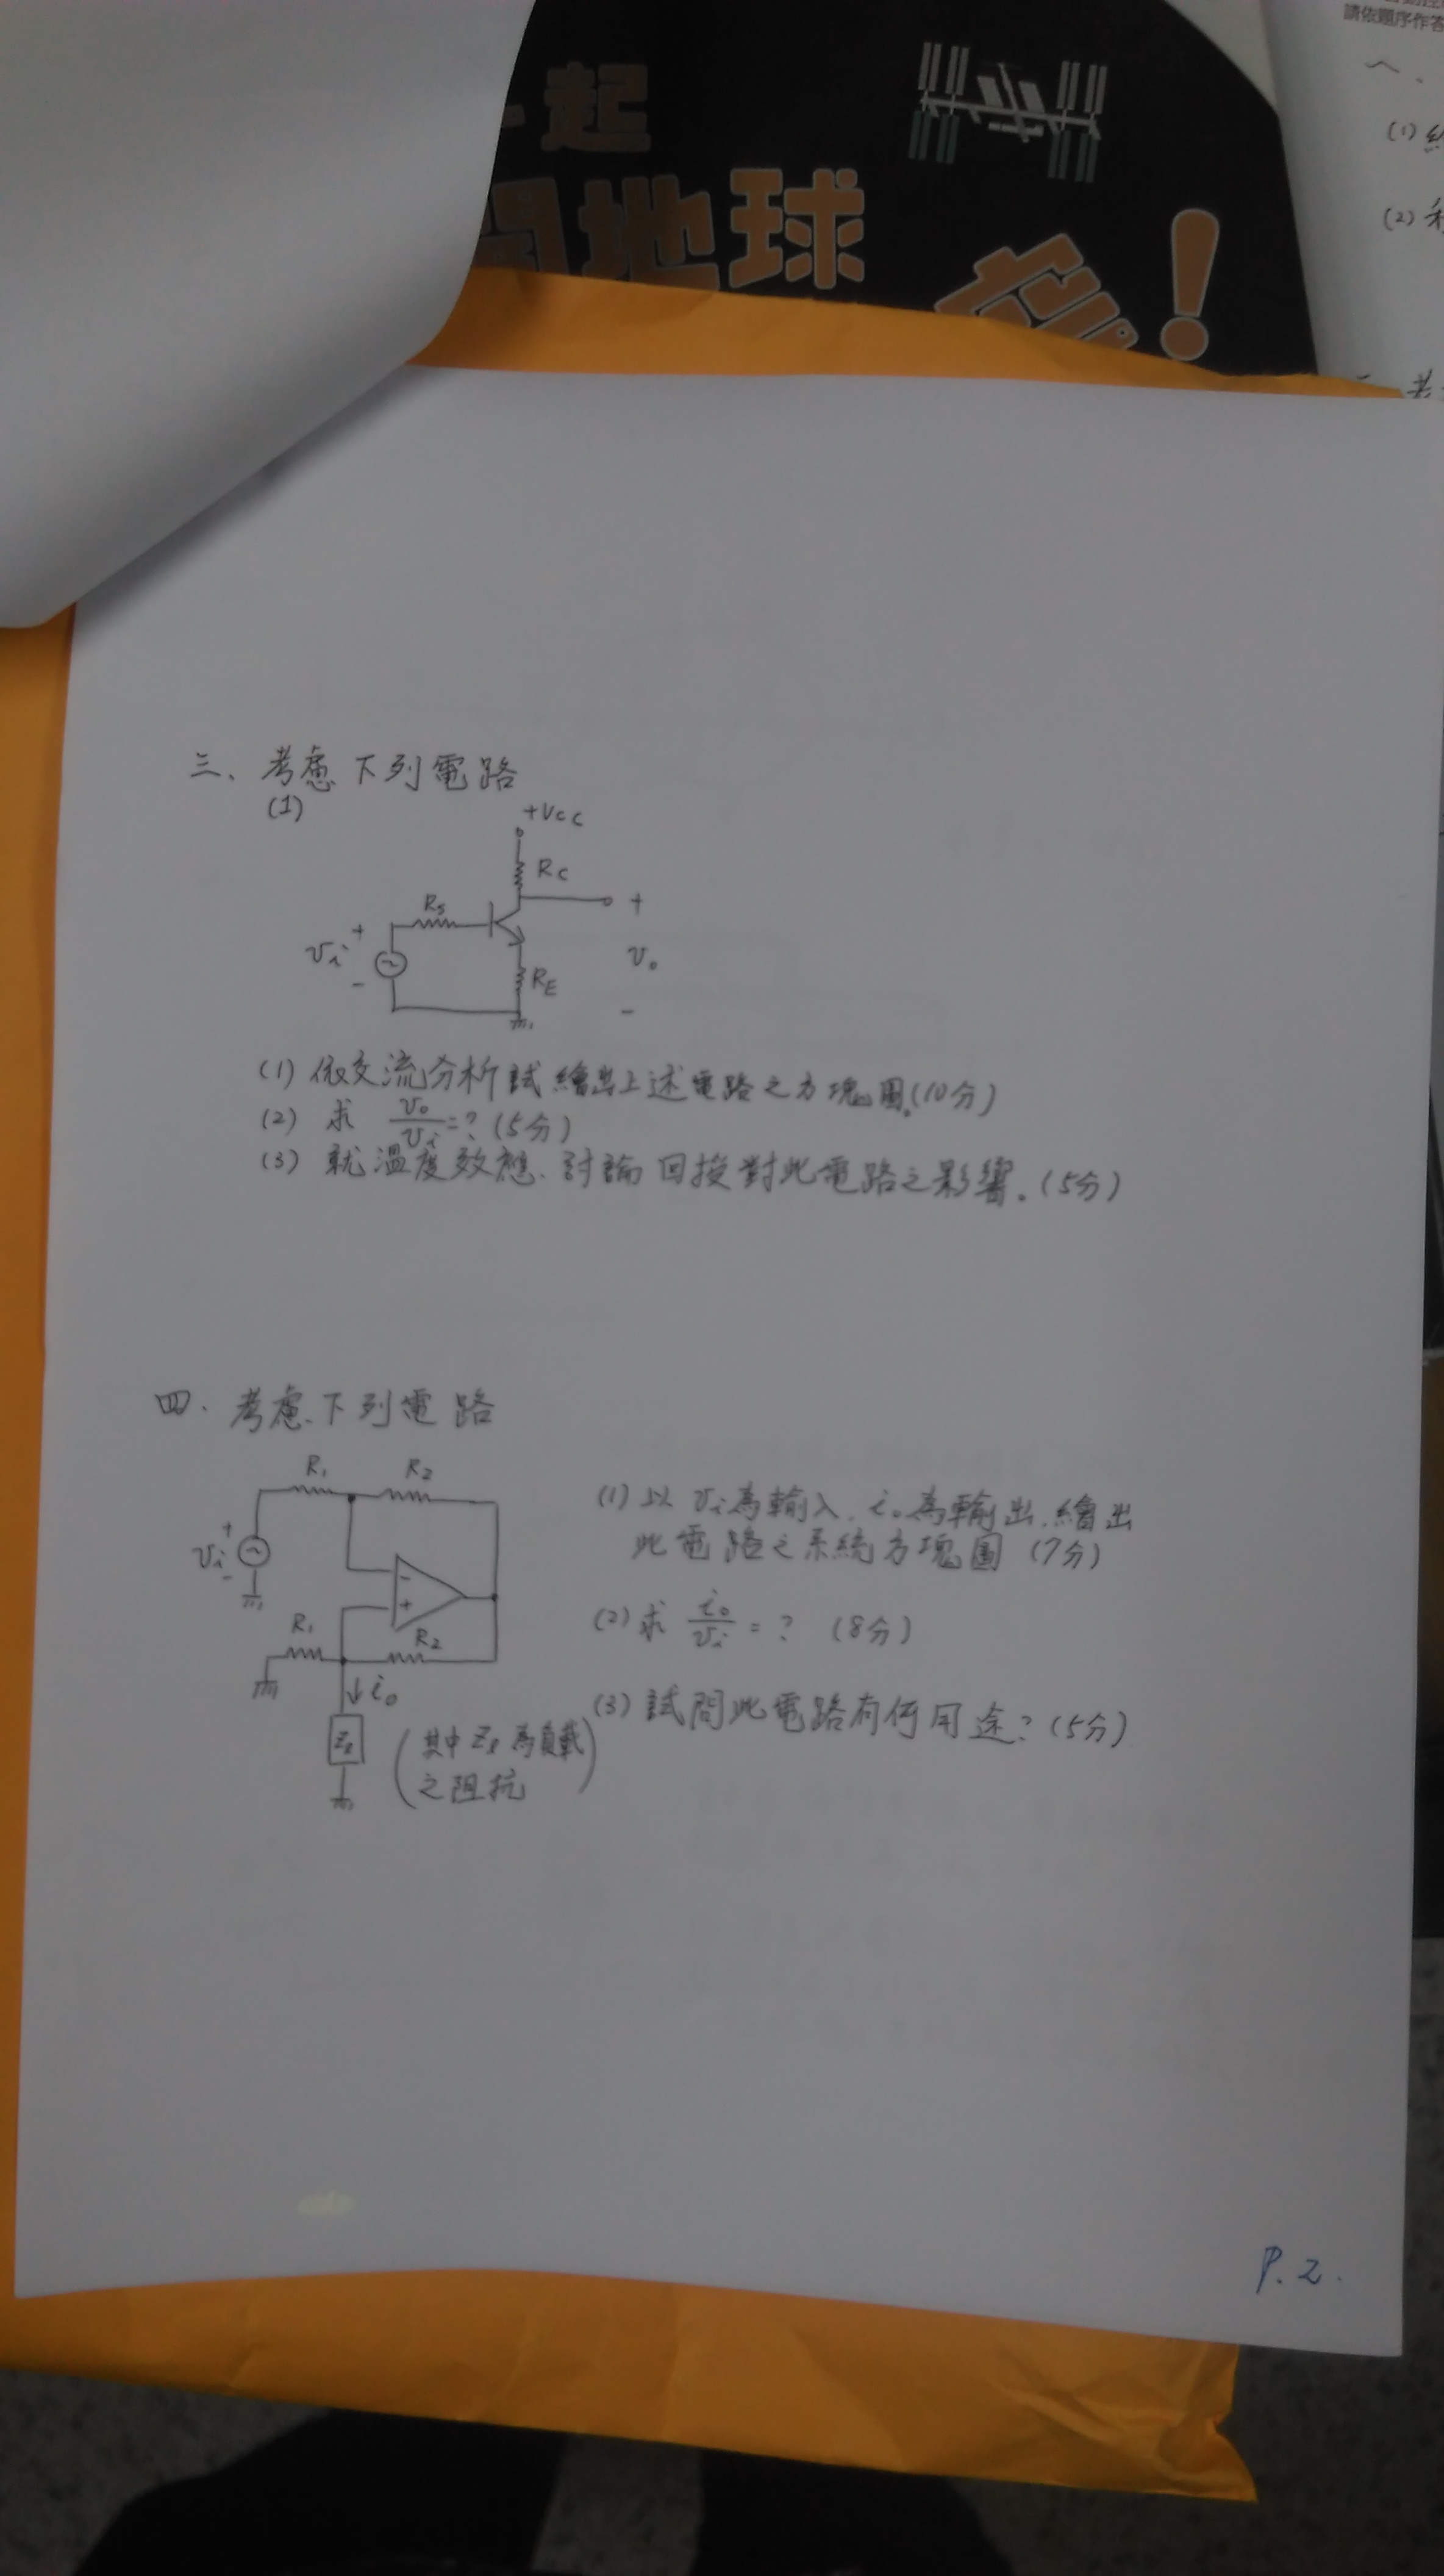 起
地球
!
請依題序作答
(1)
(2)
三、考慮下列電路
(1)
+Vcc
Rc
Rs
+
+
vi
vo
-
RE
-
(1) 依交流分析試繪出上述電路之方塊圖。(10分)
(2) 求 vo/vi = ? (5分)
(3) 就溫度效應、討論回授對此電路之影響。(5分)
四、考慮下列電路
R1
R2
+
vi
-
-
+
R1
R2
io
Zl
(其中 Zl 為負載
之阻抗)
(1) 以 vi 為輸入、io 為輸出、繪出
此電路之系統方塊圖 (7分)
(2) 求 io/vi = ? (8分)
(3) 試問此電路有何用途? (5分)
P.2.